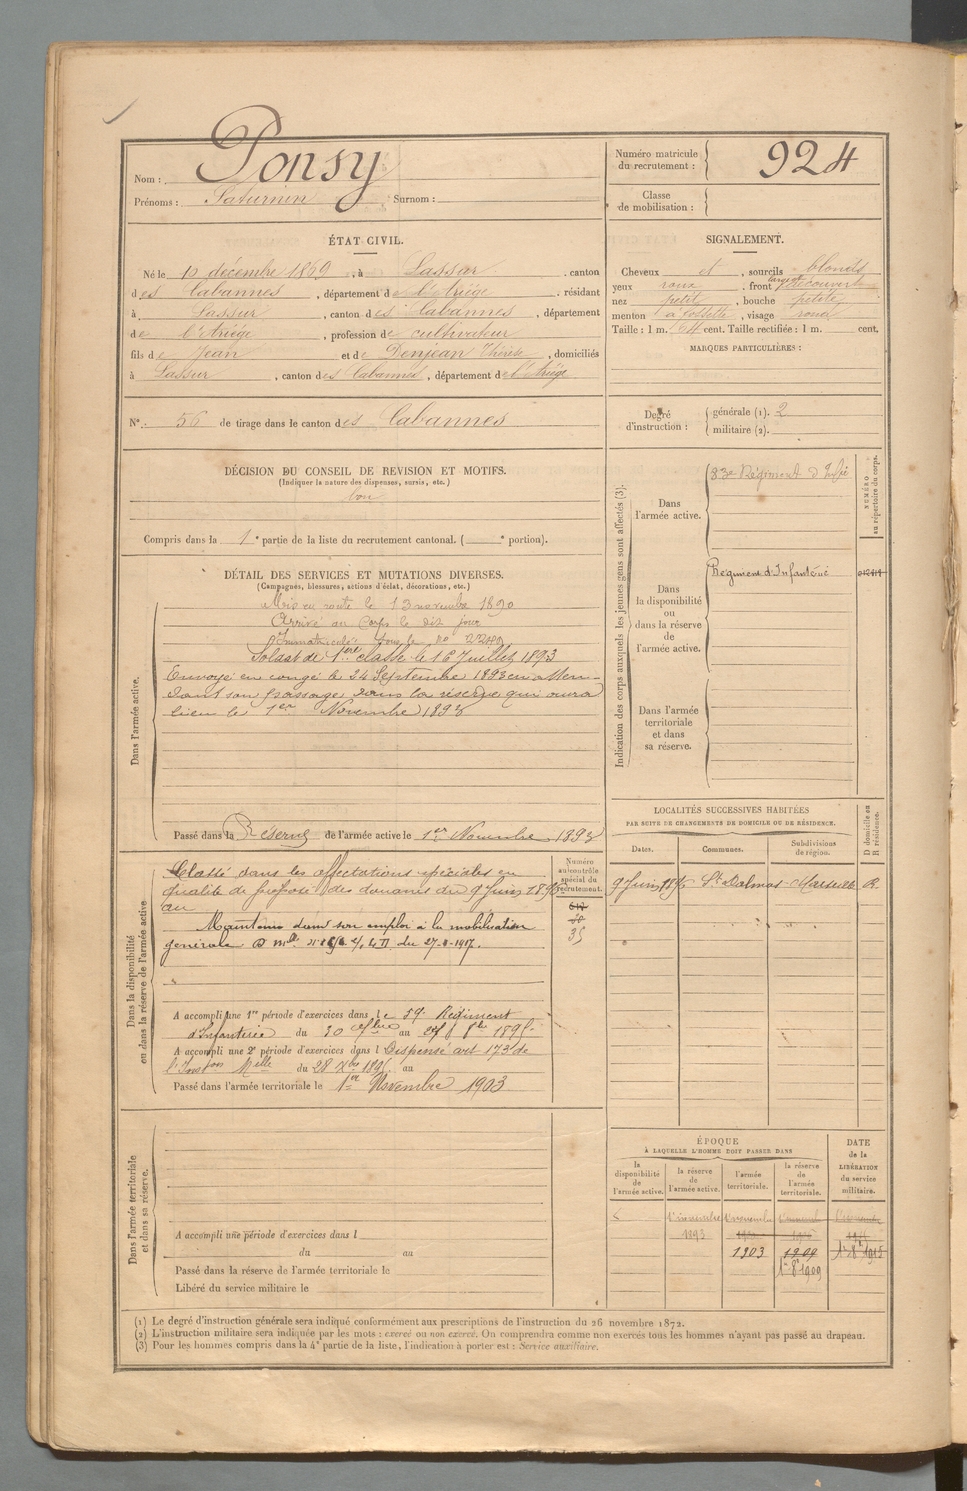 Nom : Ponsy
Prénoms : Saturnin Surnom :
Numéro matricule du recrutement : 924
Classe de mobilisation :
ÉTAT CIVIL.
Né le 10 décembre 1869, à Lassur. canton
des Cabannes, département de l'Ariège. résidant
à Lassur, canton des Cabannes, département
de l'Ariège, profession de cultivateur
fils de Jean et de Donjean Thérèse, domiciliés
à Lassur, canton des Cabannes, département de l'Ariège
SIGNALEMENT.
Cheveux et, sourcils blonds
yeux roux, front large découvert
nez petit, bouche petite
menton à fossette, visage rond
Taille : 1 m. 64 cent. Taille rectifiée : 1 m. cent.
MARQUES PARTICULIÈRES :
N° : 56 de tirage dans le canton des Cabannes
Degré d'instruction :
générale (1). 2
militaire (2).
DÉCISION DU CONSEIL DE REVISION ET MOTIFS.
(Indiquer la nature des dispenses, sursis, etc.)
bon
Compris dans la 1e partie de la liste du recrutement cantonal. ( e portion).
DÉTAIL DES SERVICES ET MUTATIONS DIVERSES.
(Campagnes, blessures, actions d'éclat, décorations, etc.)
Dans l'armée active.
Mis en route le 13 novembre 1890
Arrivé au Corps le dit jour
Immatriculé sous le no
Soldat de 1ère classe le 16 Juillet 1893
Envoyé en congé le 24 Septembre 1893 en atten-
dant son passage dans la réserve qui aura
lieu le 1er Novembre 1893
Passé dans la Réserve de l'armée active le 1er Novembre 1893
Indication des corps auxquels les jeunes gens sont affectés (3).
NUMÉRO au répertoire du corps.
Dans l'armée active.
83e Régiment d'Infie
Dans la disponibilité ou dans la réserve de l'armée active.
Régiment d'Infanterie
Dans l'armée territoriale et dans sa réserve.
LOCALITÉS SUCCESSIVES HABITÉES
PAR SUITE DE CHANGEMENTS DE DOMICILE OU DE RÉSIDENCE.
Dates. Communes. Subdivisions de région. D domicile ou R résidence.
9 Juin 1895 St Dalmas Marseille R.
Dans la disponibilité ou dans la réserve de l'armée active.
Numéro au contrôle spécial du recrutement.
Classé dans les affectations spéciales en
qualité de préposé des douanes du 9 Juin 1895
au
Maintenu dans son emploi à la mobilisation
générale
35
A accompli une 1re période d'exercices dans le 59e Régiment
d'Infanterie du 30 au 1895
A accompli une 2e période d'exercices dans l Dispensé art 173 de
l'Inston Mlle du 28 Xbre 1895 au
Passé dans l'armée territoriale le 1er Novembre 1903
Dans l'armée territoriale et dans sa réserve.
A accompli une période d'exercices dans l
du au
Passé dans la réserve de l'armée territoriale le
Libéré du service militaire le
ÉPOQUE
À LAQUELLE L'HOMME DOIT PASSER DANS
la disponibilité de l'armée active.
la réserve de l'armée active.
l'armée territoriale.
la réserve de l'armée territoriale.
DATE de la LIBÉRATION du service militaire.
1er novembre 1893
1er novembre
1903
1909
1er 8bre 1909
1er 8bre 1915
(1) Le degré d'instruction générale sera indiqué conformément aux prescriptions de l'instruction du 26 novembre 1872.
(2) L'instruction militaire sera indiquée par les mots : exercé ou non exercé. On comprendra comme non exercés tous les hommes n'ayant pas passé au drapeau.
(3) Pour les hommes compris dans la 4e partie de la liste, l'indication à porter est : Service auxiliaire.